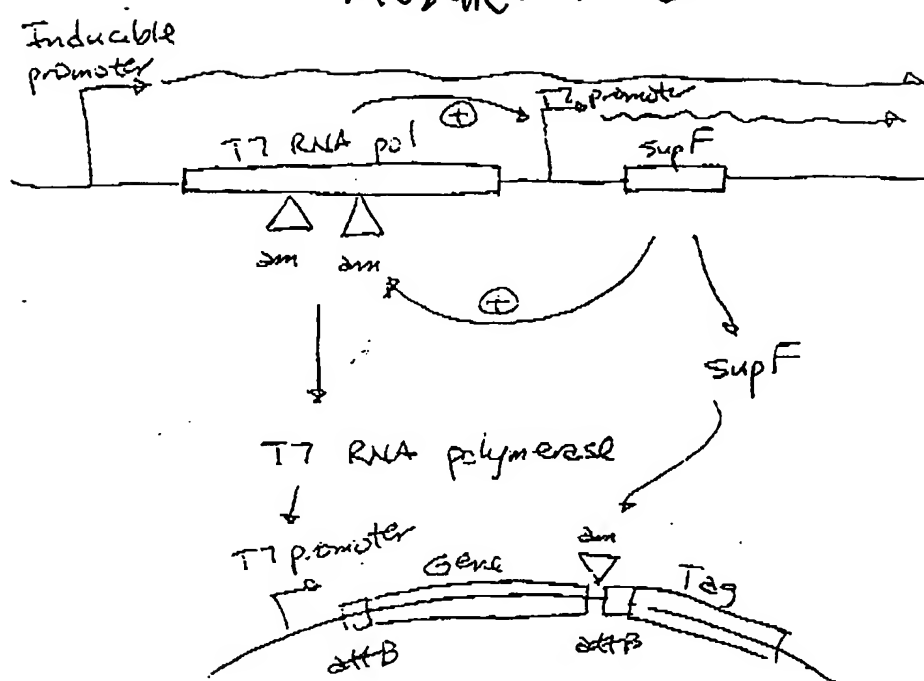 Inducible
promoter
T7 promoter
+
T7 RNA pol
supF
am am
+
supF
T7 RNA polymerase
T7 promoter
am
Gene
Tag
attB
attB